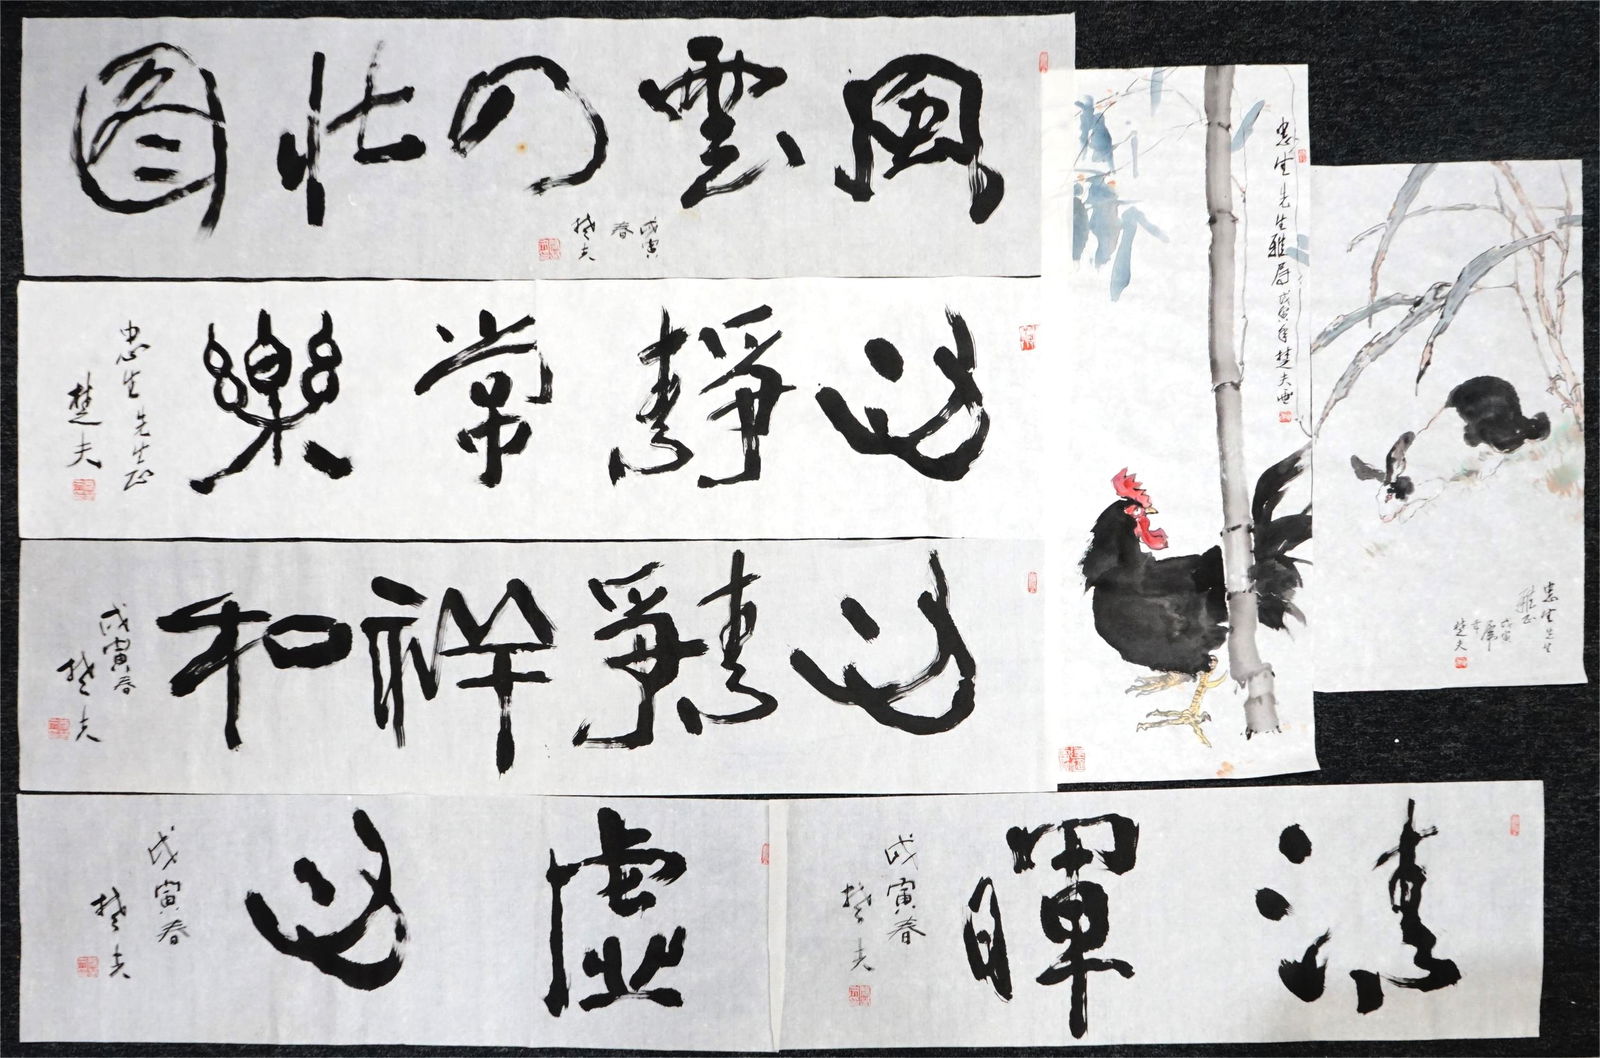 風雲壮图
戊寅
春
楚夫
心靜常樂
忠生先生正
楚夫
心靜祥和
戊寅春
楚夫
虛心
戊寅春
楚夫
清暉
戊寅春
楚夫
忠生先生雅屬戊寅年楚夫画
忠生先生
雅正
戊寅
楚夫